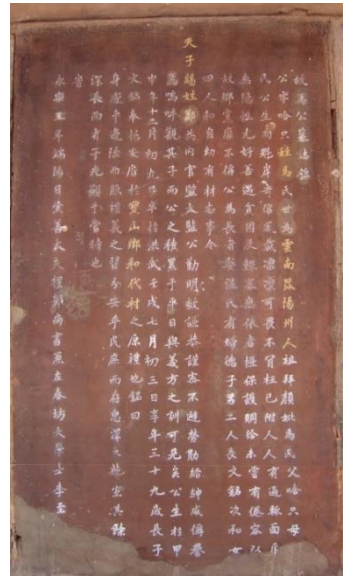 故馬公墓誌銘
公字哈只姓馬氏世為雲南昆陽州人祖拜顏妣馬氏父哈只母
氏公生而魁岸奇偉風裁凜凜可畏不肯枉己附人人有過輒面斥
無隱性尤好善遇貧困及鰥寡無依者恒保護賙給未嘗有倦容以
故鄉黨靡不稱公為長者娶溫氏有婦德子男二人長文銘次和女
四人和自幼有材志事今
天子賜姓鄭為內官監太監公勤明敏謙恭謹密不避勞勩縉紳咸稱譽
焉嗚呼觀其子而公之積累于平日與義方之訓可見矣公生於甲
申年十二月初九日卒於洪武壬戌七月初三日享年三十九歲長子
文銘奉柩安厝於寶山鄉和代村之原禮也銘曰
身處乎邊陲而服禮義之習分安乎民庶而存惠澤之施宜其餘
深長而有子光顯于當時也
旹
永樂三年端陽日資善大夫禮部尚書兼左春坊大學士李至